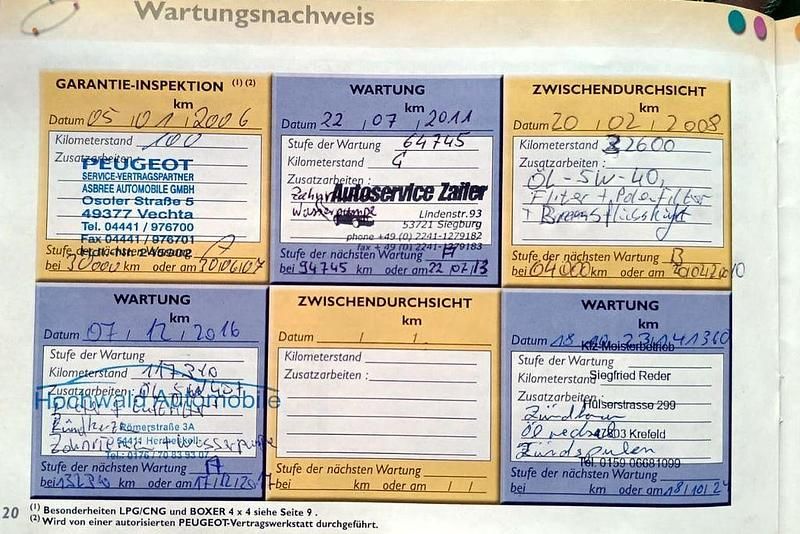 Wartungsnachweis
GARANTIE-INSPEKTION (1) (2)
km
Datum 05 | 01 | 2006
Kilometerstand 100
Zusatzarbeiten:
PEUGEOT
SERVICE-VERTRAGSPARTNER
ASBREE AUTOMOBILE GMBH
Osoler Straße 5
49377 Vechta
Tel. 04441 / 976700
Fax 04441 / 976701
Stufe der nächsten Wartung A
bei 30000 km oder am
WARTUNG
km
Datum 22 | 07 | 2011
Stufe der Wartung 64745
Kilometerstand
Zusatzarbeiten:
Autoservice Zailer
Lindenstr.93
53721 Siegburg
phone +49 (0) 2241-1279182
fax + 49 (0) 2241-1279183
Stufe der nächsten Wartung A
bei 94745 km oder am 22 07/13
ZWISCHENDURCHSICHT
km
Datum 20 | 02 | 2008
Kilometerstand 32600
Zusatzarbeiten:
ÖL-5W-40,
Filter + Pollenfilter
+ Bremsflüssigkeit
Stufe der nächsten Wartung B
bei km oder am
WARTUNG
km
Datum 07 | 12 | 2016
Stufe der Wartung
Kilometerstand 117340
Zusatzarbeiten: ÖL 5W40
Hochwald Automobile
Zündkerzen
Römerstraße 3A
Zahnriemen + Wasserpumpe
54411 Hermeskeil
Tel.: 0176 / 70 83 93 07
Stufe der nächsten Wartung A
bei km oder am
ZWISCHENDURCHSICHT
km
Datum | |
Kilometerstand
Zusatzarbeiten :
Stufe der nächsten Wartung
bei km oder am | |
WARTUNG
km
Datum 18
Kfz-Meisterbetrieb
Stufe der Wartung
Siegfried Reder
Kilometerstand
Zusatzarbeiten:
Hülserstrasse 299
47803 Krefeld
Zündspulen
Tel. 0159 06681099
Stufe der nächsten Wartung
bei km oder am 18|10|2
20
(1) Besonderheiten LPG/CNG und BOXER 4 x 4 siehe Seite 9 .
(2) Wird von einer autorisierten PEUGEOT-Vertragswerkstatt durchgeführt.